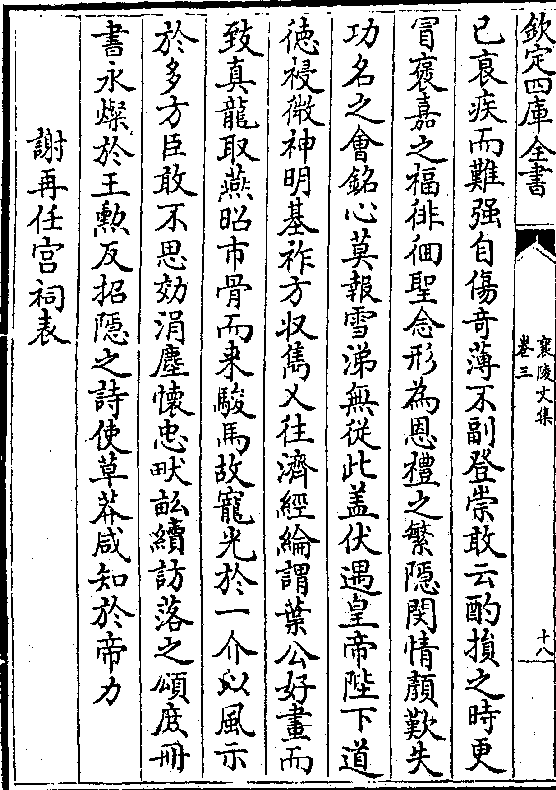 欽定四庫全書
襄陵文集
卷三
十八
已衰疾而難强自傷竒薄不副登崇敢云酌損之時更
冒褒嘉之福徘徊聖念形為恩禮之繁隱閔情顔歎失
功名之會銘心莫報雪涕無從此盖伏遇皇帝陛下道
徳祲微神明基祚方收雋乂往濟經綸謂葉公好畫而
致真龍取燕昭市骨而来駿馬故寵光於一介以風示
於多方臣敢不思効涓塵懷忠畎畝續訪落之頌庶冊
書永燦於王勲反招隠之詩使草莽咸知於帝力
謝再任宫祠表